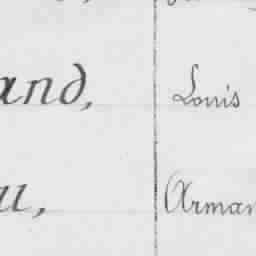 and, Louis
u, Arman